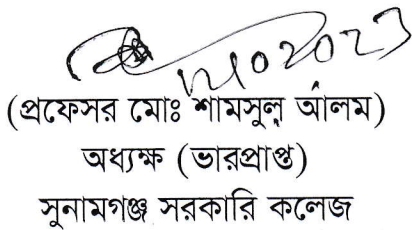 (প্রফেসর মোঃ শামসুল আলম)
অধ্যক্ষ (ভারপ্রাপ্ত)
সুনামগঞ্জ সরকারি কলেজ